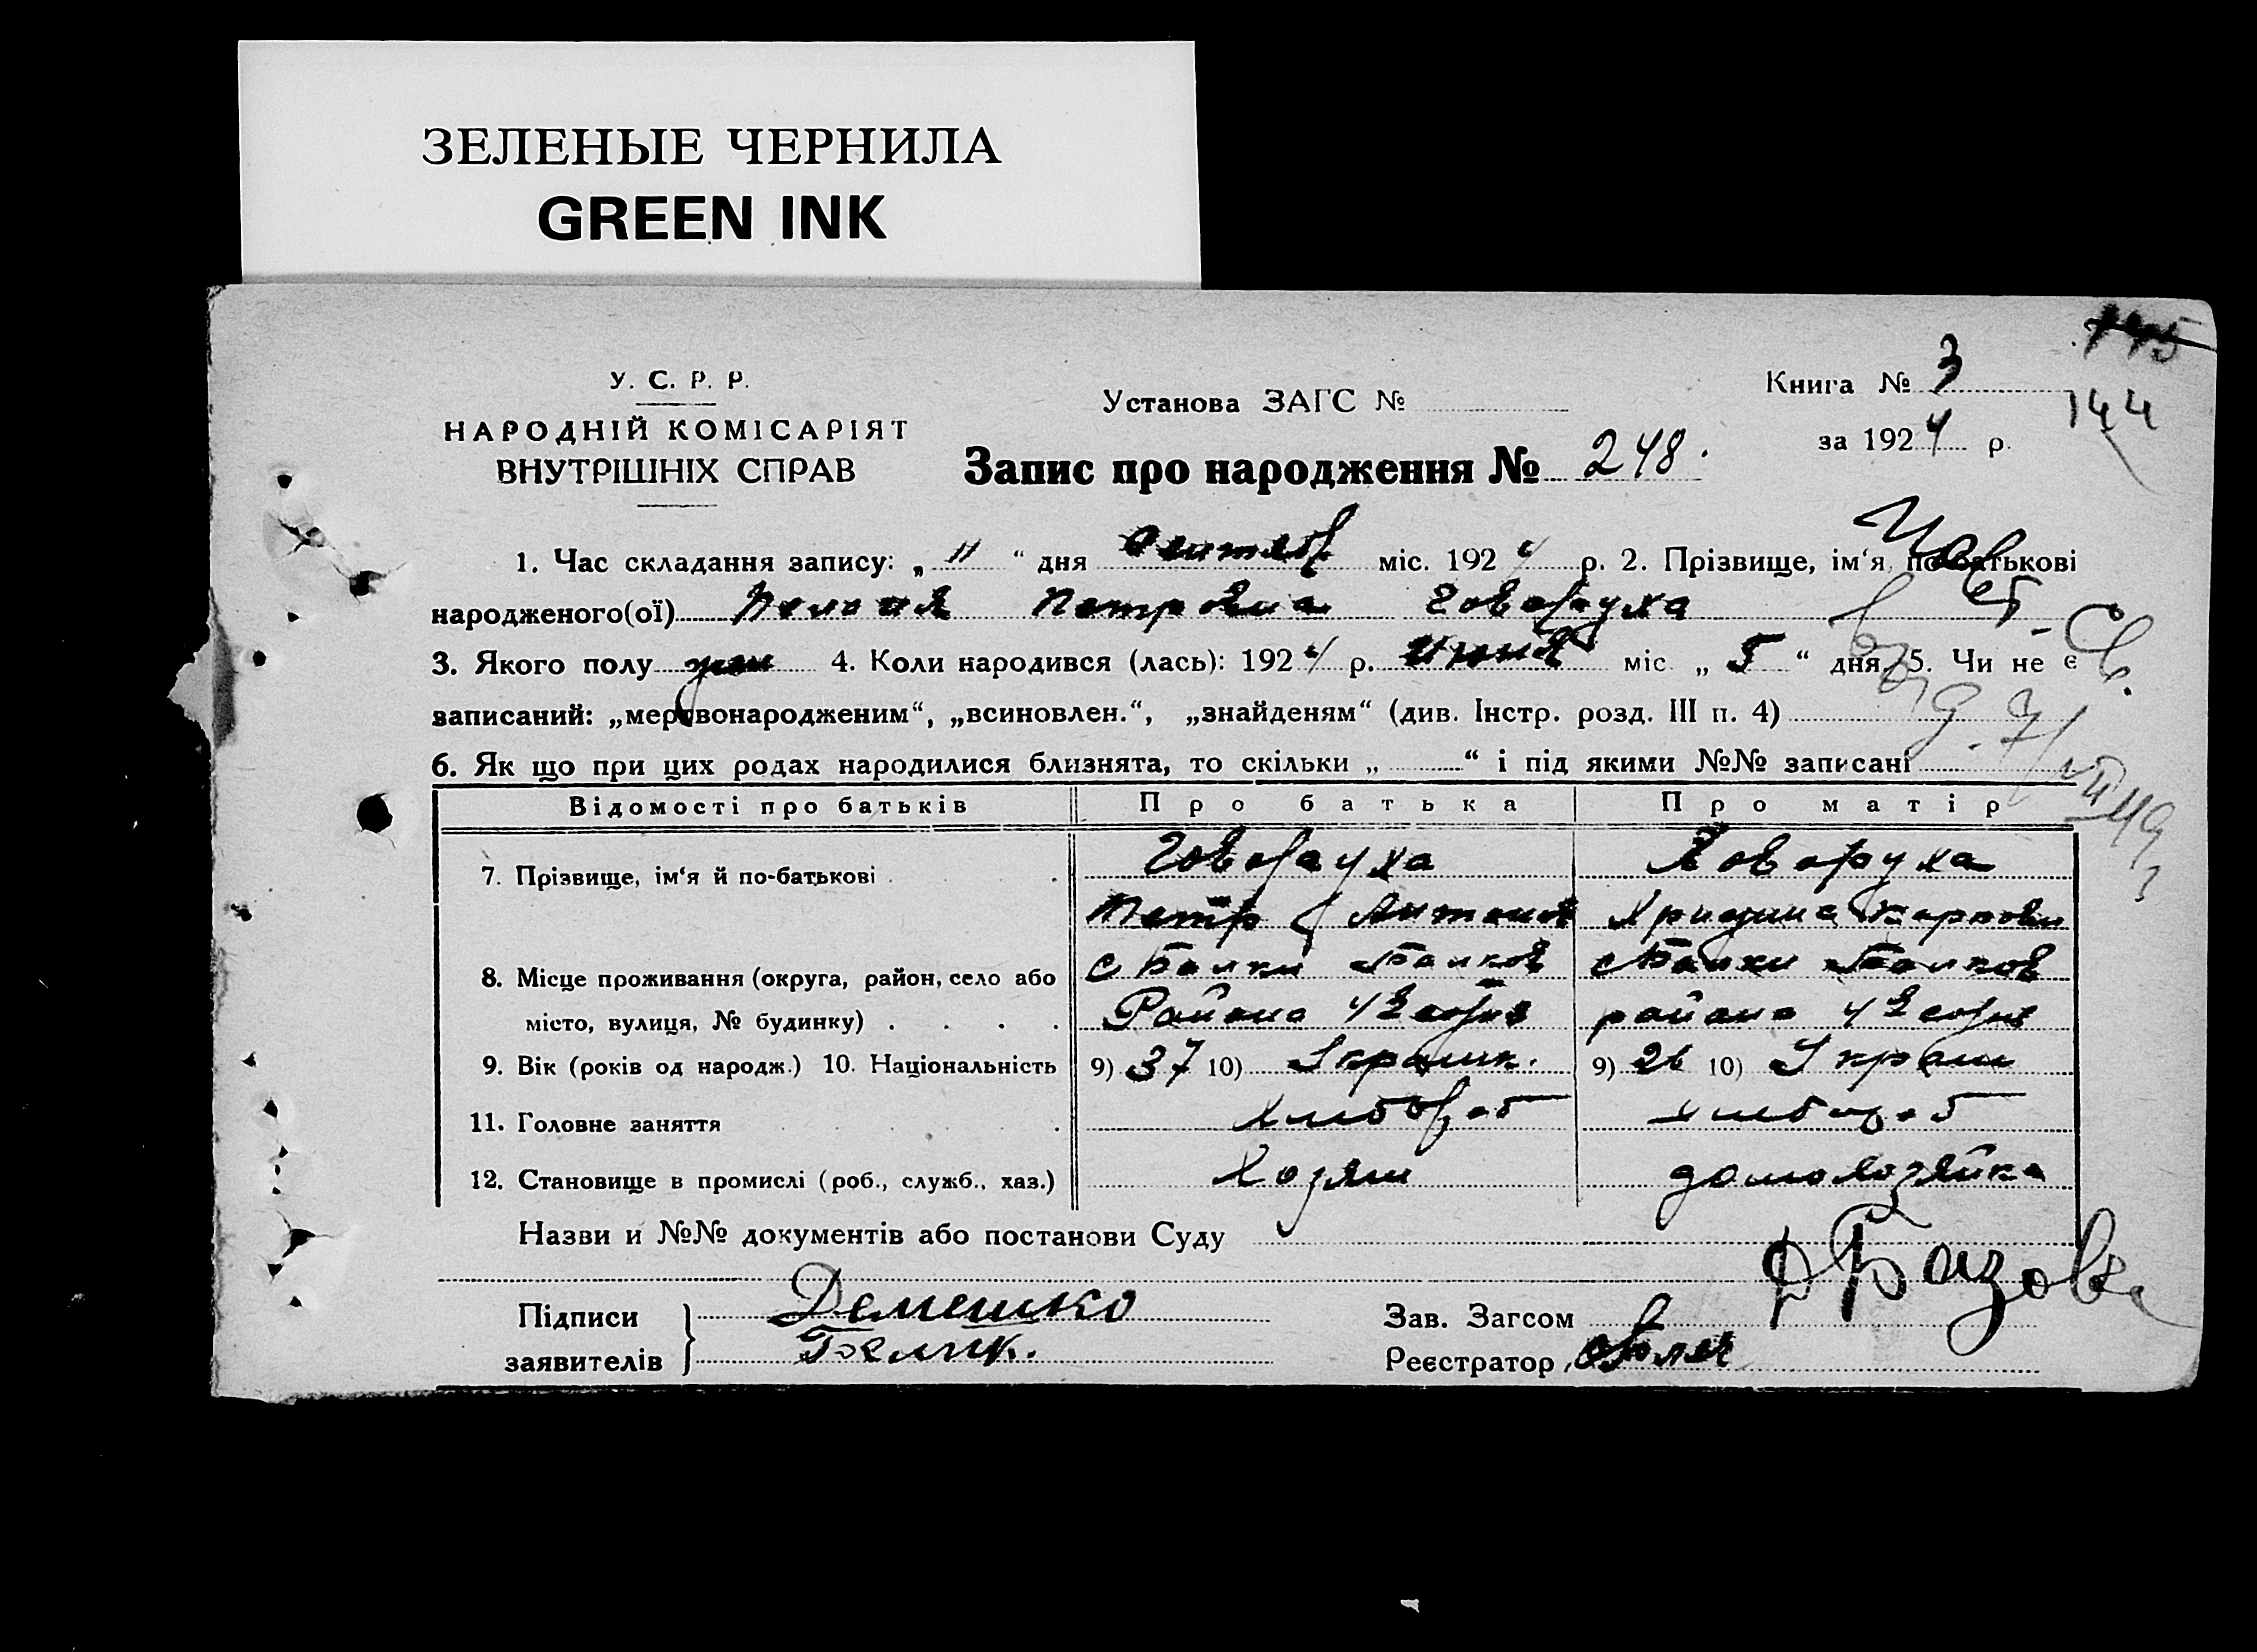 ЗЕЛЕНЫЕ ЧЕРНИЛА
GREEN INK
145
У. С. Р. Р.
НАРОДНІЙ КОМІСАРІЯТ
ВНУТРІШНІХ СПРАВ
Установа ЗАГС №
Книга № 3
144
за 1924 р.
Запис про народження № 248.
1. Час складання запису: „ 11 “ дня міс. 1924 р. 2. Прізвище, ім‘я, по батькові
народженого(ої) Петровна Говоруха
3. Якого полу жен 4. Коли народився (лась): 1924 р. Июня міс. „ 5 “ дня. 5. Чи не є
записаний: „мертвонародженим“, „всиновлен.“, „знайденям“ (див. Інстр. розд. III п. 4)
6. Як що при цих родах народилися близнята, то скільки „ “ і під якими №№ записані
Відомості про батьків Про батька Про матір
7. Прізвище, ім‘я й по-батькові Говоруха Говоруха
Петр Антонов Карповн
8. Місце проживання (округа, район, село або с Балки Балков с Балки Балков
місто, вулиця, № будинку) Района района
9. Вік (років од народж.) 10. Національність 9) 37 10) Украин. 9) 26 10) Украин
11. Головне заняття Хлебороб Хлебороб
12. Становище в промислі (роб., служб., хаз.) Хозяин домохозяйка
Назви и №№ документів або постанови Суду
Підписи Демешко Зав. Загсом
заявителів Белик. Реєстратор